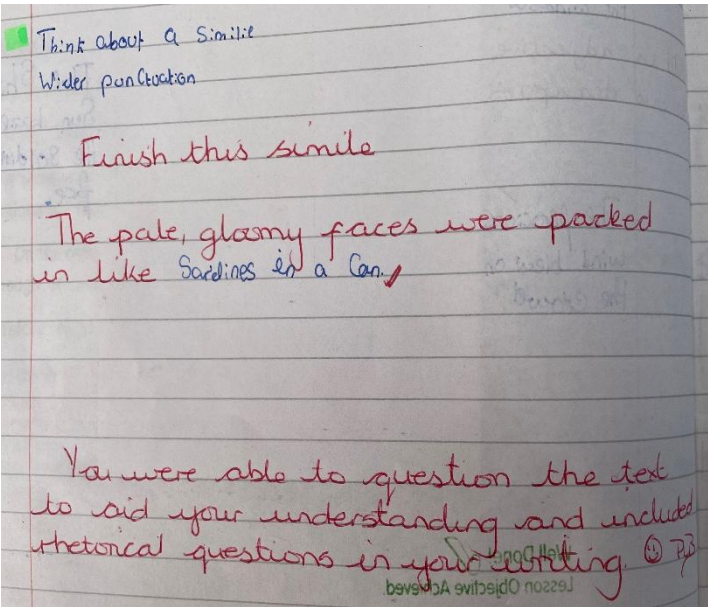 Think about a Similie
Wider punctuation
Finish this simile
The pale, gloomy faces were packed
in like Sardines in a Can.
You were able to question the text
to aid your understanding and included
rhetorical questions in your writing.
Well Done
Lesson Objective Achieved